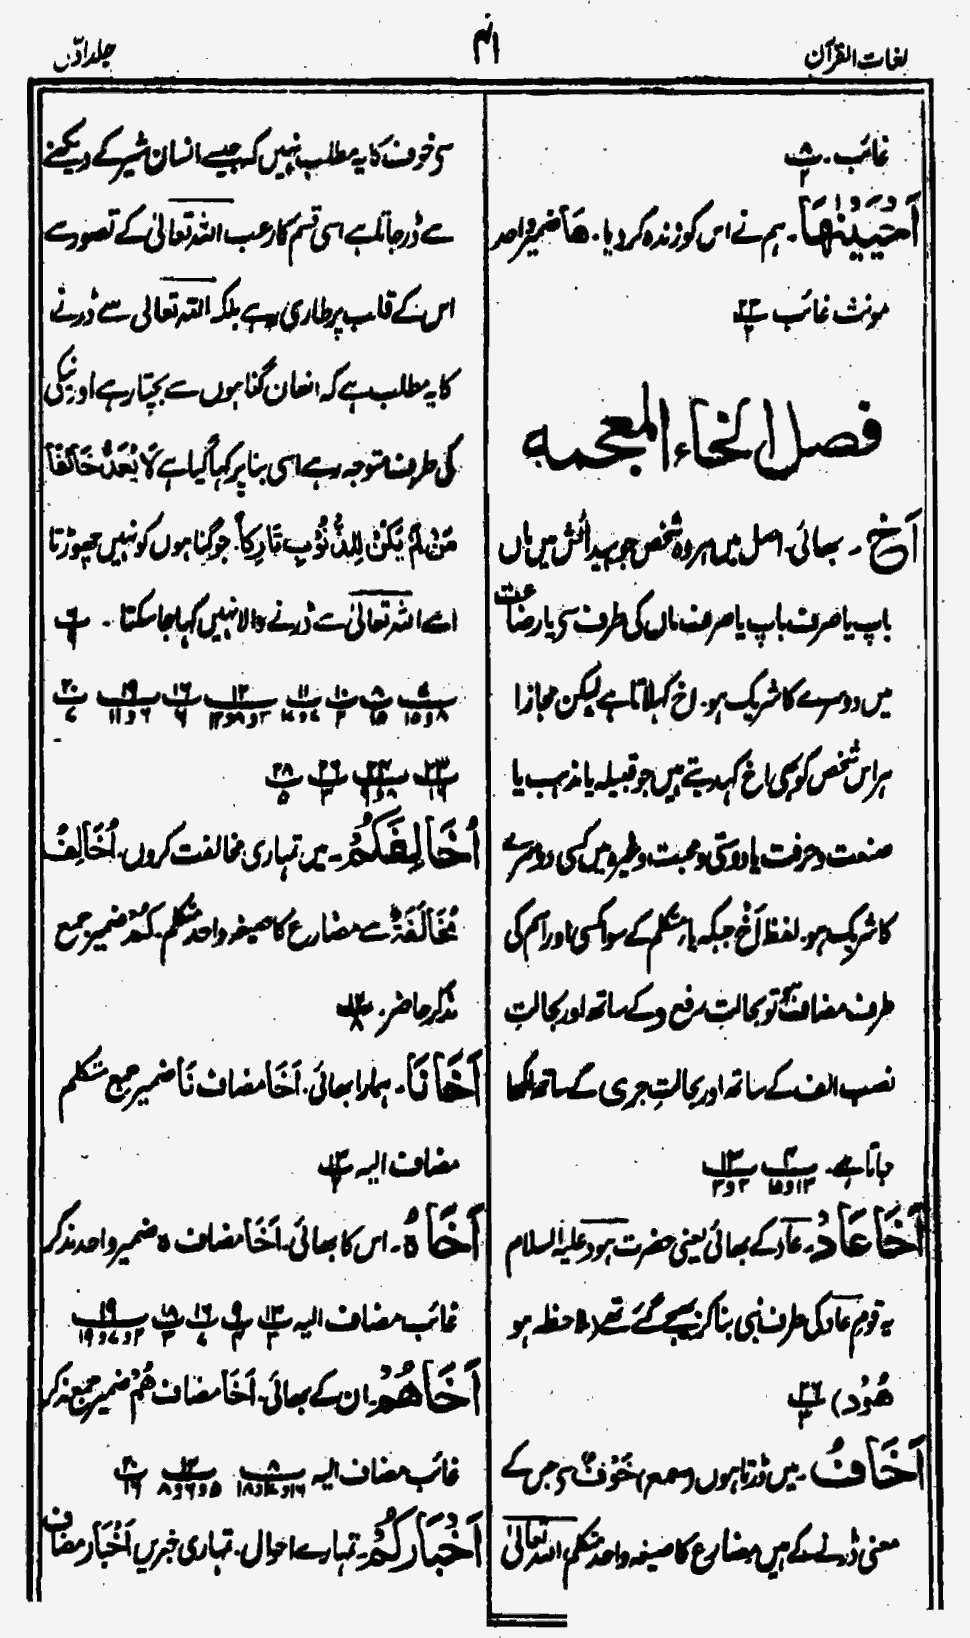 لغات القرآن
۱۴۱
جلد اوّل
غائب۔ پ ۸ ۲
اَحْيَيْنٰهَا۔ ہم نے اس کو زندہ کر دیا۔ هَا ضمیر واحد
مونث غائب پ ۲۳ ۲
فصل الخاء المعجمہ
اَخٌ۔ بھائی۔ اصل میں ہر وہ شخص جو پیدائش میں ماں
باپ یا صرف باپ یا صرف ماں کی طرف سے یا رضاعت
میں دوسرے کا شریک ہو۔ اخ کہلاتا ہے لیکن مجازا
ہر اس شخص کو بھی اخ کہدیتے ہیں جو قبیلہ یا مذہب یا
صنعت و حرفت یا دوستی و محبت وغیرہ میں کسی دوسرے
کا شریک ہو۔ لفظ اَخٌ جبکہ یاء متکلم کے سوا کسی اور اسم کی
طرف مضاف ہو تو بحالتِ رفع و کے ساتھ اور بحالتِ
نصب الف کے ساتھ اور بحالتِ جر ی کے ساتھ لکھا
جاتا ہے۔ پ ۴ ۱۳و۱۵ پ ۱۳ ۲و۳
اَخَا عَادٍ۔ عاد کے بھائی یعنی حضرت ہود علیہ السلام
یہ قوم عاد کی طرف نبی بنا کر بھیجے گئے تھے (ملاحظہ ہو
هُوْد) پ ۲۶ ۳
اَخَافُ۔ میں ڈرتا ہوں (سمع) خَوْفٌ سے جس کے
معنی ڈرنے کے ہیں مضارع کا صیغہ واحد متکلم اللہ تعالیٰ
سے خوف کا یہ مطلب نہیں کہ جیسے انسان شیر کے دیکھنے
سے ڈر جاتا ہے اسی قسم کا رعب اللہ تعالیٰ کے تصور سے
اس کے قلب پر طاری رہے بلکہ اللہ تعالی سے ڈرنے
کا یہ مطلب ہے کہ انسان گناہوں سے بچتا رہے اور نیکی
کی طرف متوجہ رہے اسی بنا پر کہا گیا ہے لَا يُعَدُّ خَائِفًا
مَنْ لَمْ يَكُنْ لِلذُّنُوْبِ تَارِكًا۔ جو گناہوں کو نہیں چھوڑتا
اسے اللہ تعالیٰ سے ڈرنے والا نہیں کہا جا سکتا۔ پ ۶ ۹
پ ۷ ۸و۱۵ پ ۸ ۱۵ پ ۱۰ ۳ پ ۱۱ پ ۱۲ پ ۱۶ ۶ پ ۱۹ ۶و۱۱ پ ۲۰ ۷
پ ۲۳ ۱۶ پ ۲۴ پ ۲۶ ۳ پ ۲۸ ۵
اُخَالِفَكُمْ۔ میں تمہاری مخالفت کروں۔ اُخَالِفُ
مُخَالَفَةٌ سے مضارع کا صیغہ واحد متکلم۔ كُمْ ضمیر جمع
مذکر حاضر۔ پ ۱۲ ۸
اَخَانَا۔ ہمارا بھائی۔ اَخَا مضاف نَا ضمیر جمع متکلم
مضاف الیہ پ ۱۳ ۲
اَخَاهُ۔ اس کا بھائی۔ اَخَا مضاف ہ ضمیر واحد مذکر
غائب مضاف الیہ پ ۱۳ ۳ پ ۹ ۴ پ ۱۶ ۷ پ ۱۸ ۳ پ ۱۹ ۲و۷و۱۹
اَخَاهُمْ۔ ان کے بھائی۔ اَخَا مضاف هُمْ ضمیر جمع مذکر
غائب مضاف الیہ پ ۸ ۱۶و۱۷و۱۸ پ ۱۲ ۵و۶و۸ پ ۲۰ ۱۶
اَخْبَارَكُمْ۔ تمہارے احوال۔ تمہاری خبریں اَخْبَار مضاف